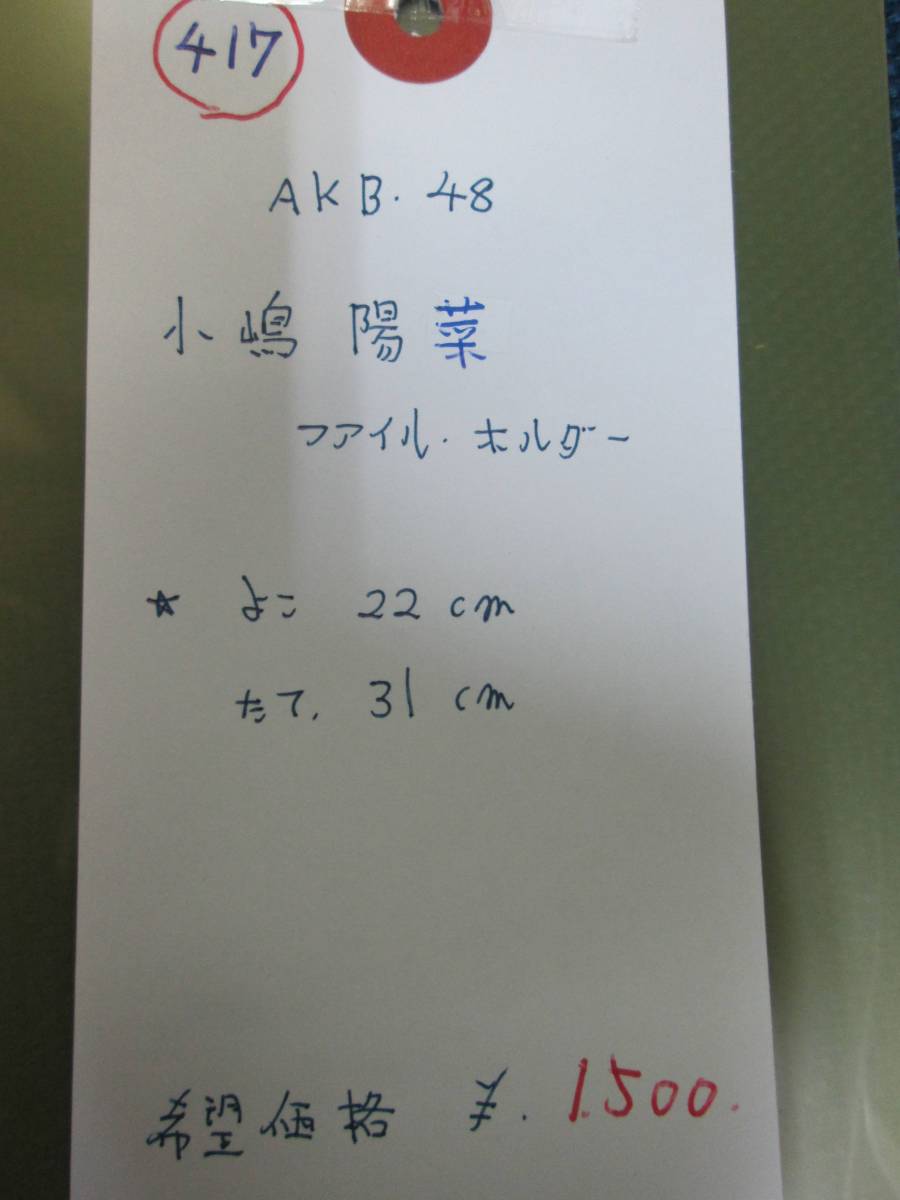 417
AKB.48
小嶋 陽菜
ファイル.ホルダー
☆ よこ 22cm
たて. 31cm
希望価格 ¥.1.500.